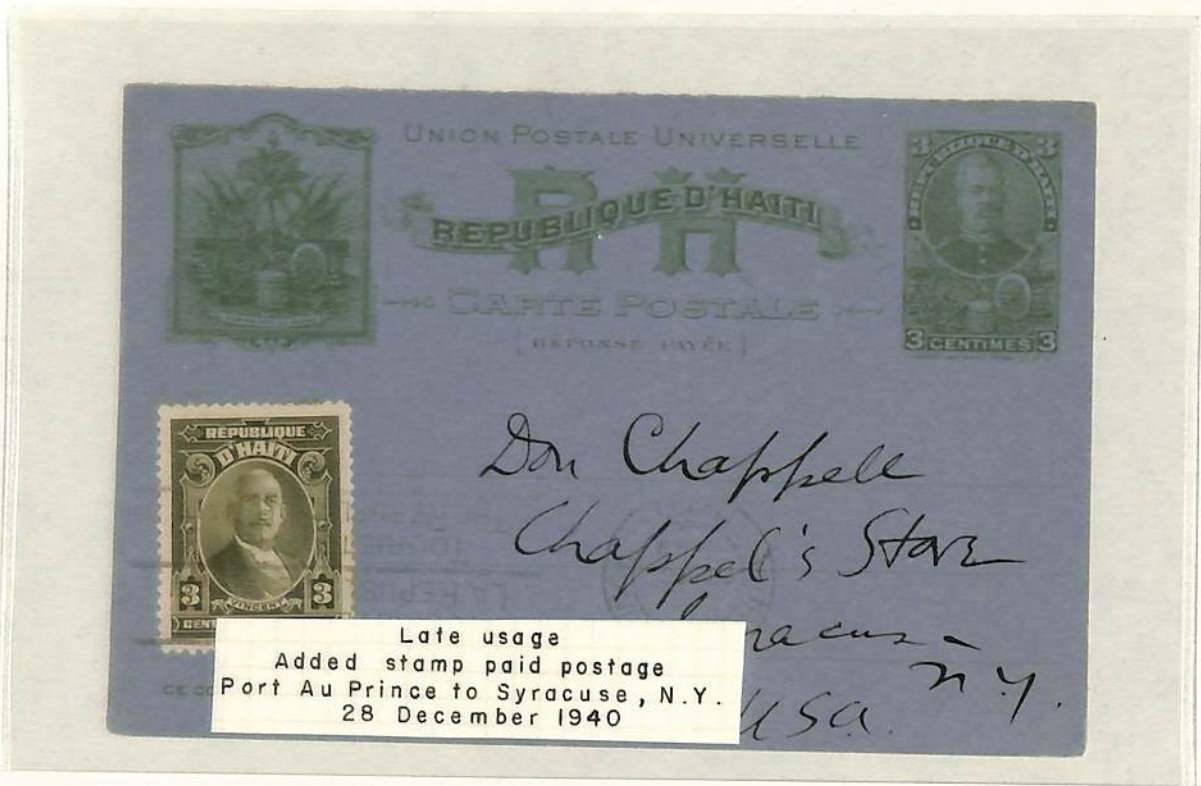 UNION POSTALE UNIVERSELLE
RH
REPUBLIQUE D'HAITI
CARTE POSTALE
[REPONSE PAYÉE]
3 3
REPUBLIQUE D'HAITI
3 CENTIMES 3
RÉPUBLIQUE
D'HAÏTI
3 VINCENT 3
Don Chappell
Chappel's Store
N.Y.
USA.
Late usage
Added stamp paid postage
Port Au Prince to Syracuse, N.Y.
28 December 1940